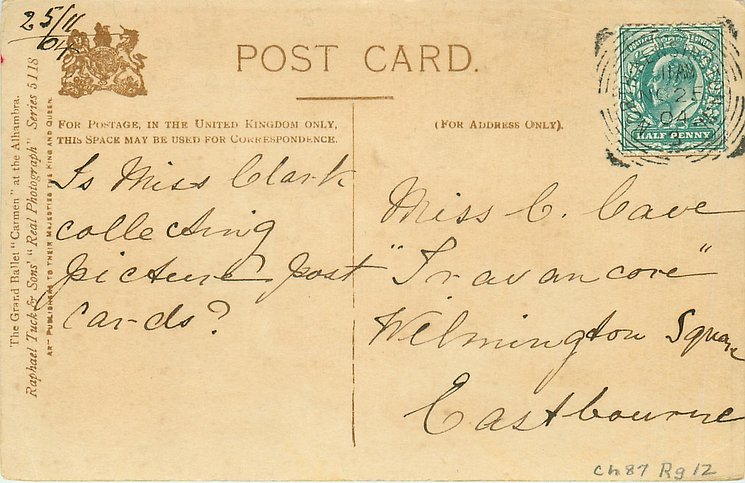 25/11
04
POST CARD.
FOR POSTAGE, IN THE UNITED KINGDOM ONLY,
THIS SPACE MAY BE USED FOR CORRESPONDENCE.
(FOR ADDRESS ONLY).
The Grand Ballet "Carmen" at the Alhambra.
Raphael Tuck & Sons' "Real Photograph" Series 5118
ART PUBLISHERS TO THEIR MAJESTIES THE KING AND QUEEN.
Is Miss Clark
collecting
picture post
cards?
Miss C. Cave
"Travancore"
Wilmington Square
Eastbourne
HALF PENNY
25
04
ch87 Rg12